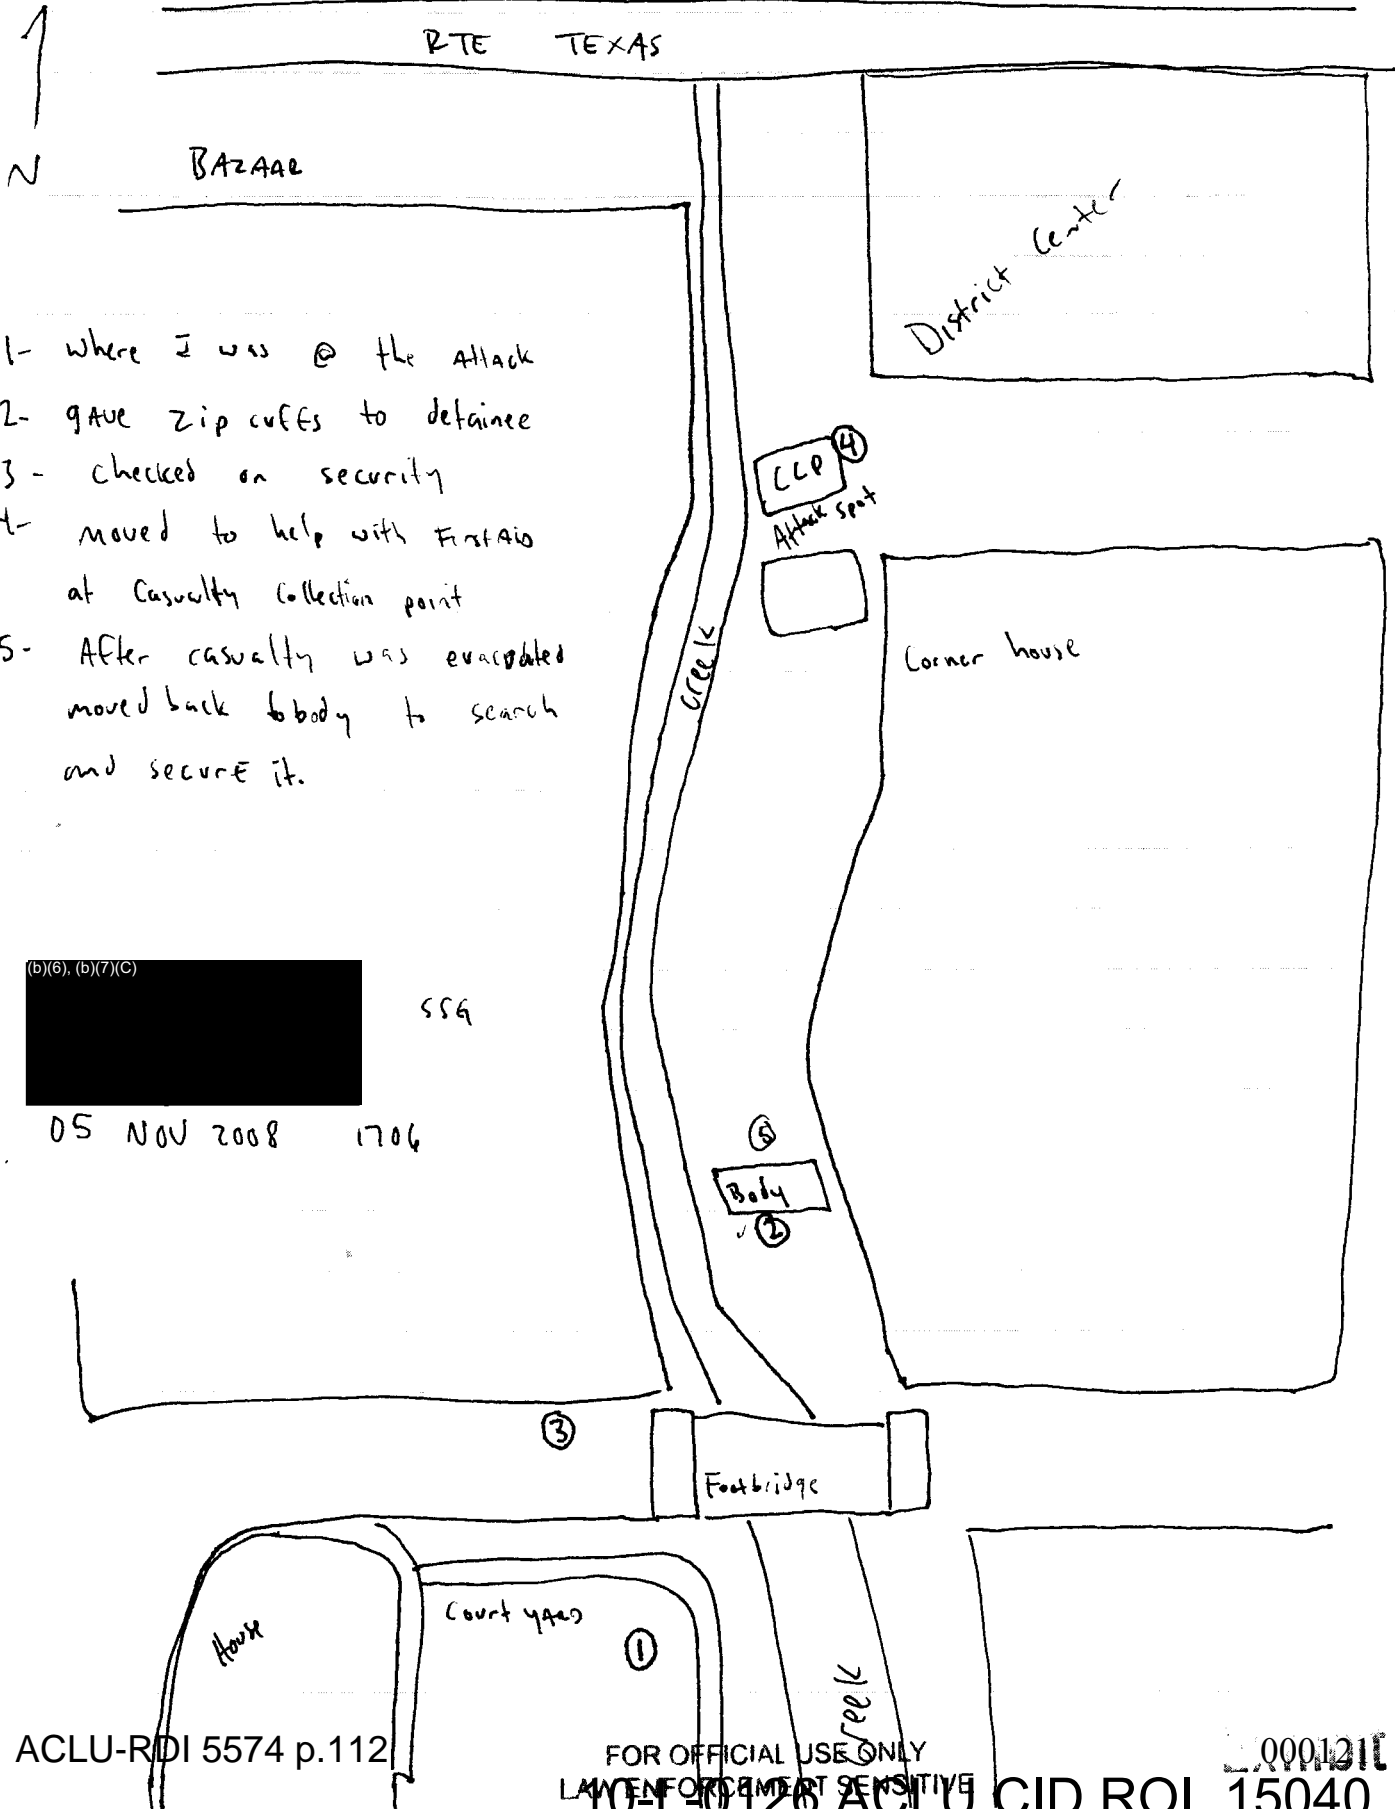 RTE TEXAS
N
BAZAAR
District Center
1- where I was @ the Attack
2- gave Zip cuffs to detainee
3- checked on security
4- moved to help with First Aid
at Casualty Collection point
5- After casualty was evacuated
moved back to body to search
and secure it.
4
CCP
Attack spot
creek
Corner house
(b)(6), (b)(7)(C)
SSG
05 NOV 2008 1706
5
Body
2
3
Footbridge
House
Court yard
1
Creek
ACLU-RDI 5574 p.112
FOR OFFICIAL USE ONLY
LAW ENFORCEMENT SENSITIVE
000121
10-L-0126 ACLU CID ROI 15040